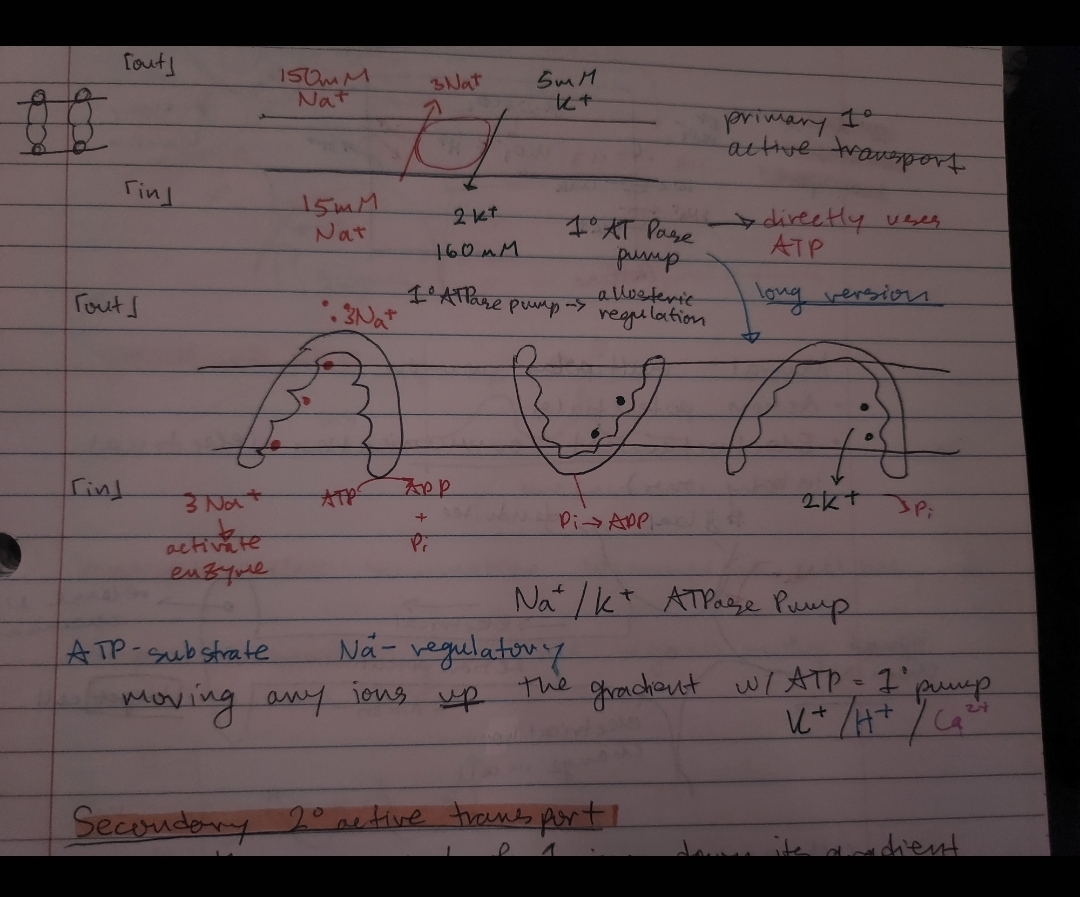 [out]
150mM
Na+
3Na+
5mM
K+
primary 1°
active transport
[in]
15mM
Na+
2K+
160mM
1° ATPase
pump
→ directly uses
ATP
long version
[out]
3Na+
1° ATPase pump → allosteric
regulation
[in]
3 Na+
↓
activate
enzyme
ATP
ADP
+
Pi
Pi → ADP
2K+
Pi
Na+/K+ ATPase Pump
ATP-substrate Na+-regulatory
moving any ions up the gradient w/ ATP = 1° pump
K+/H+/Ca2+
Secondary 2° active transport
down its gradient